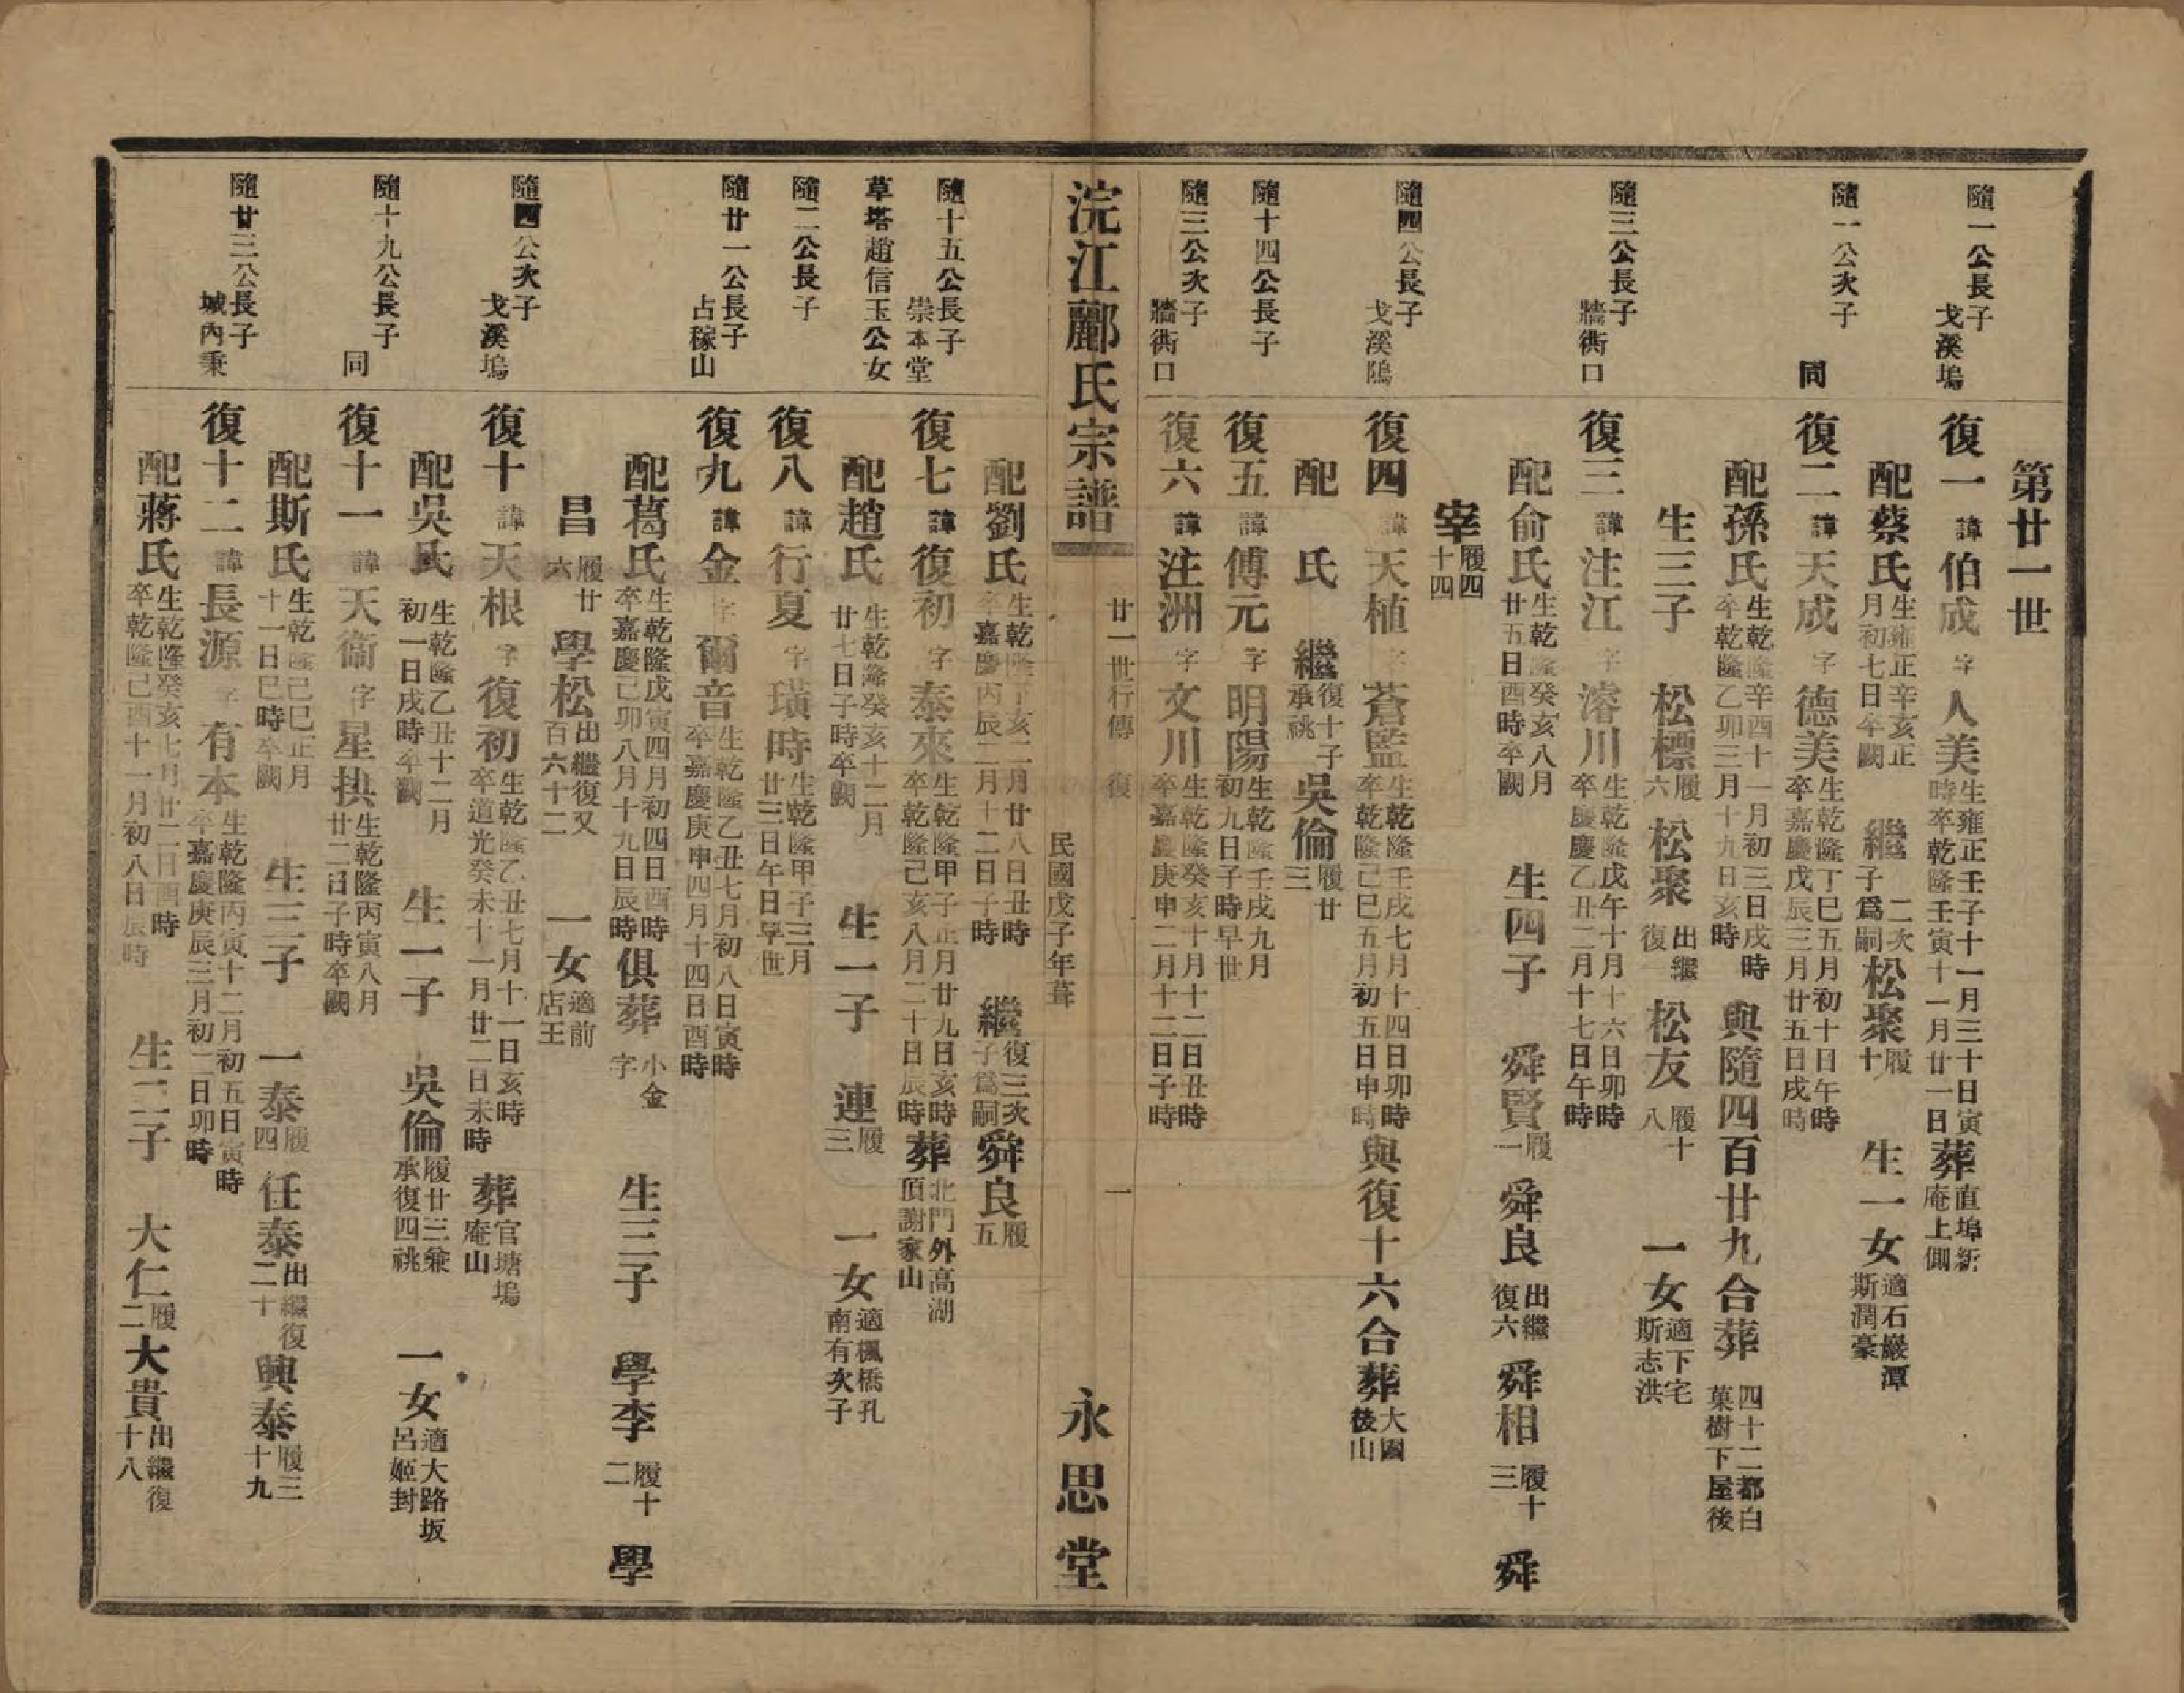 第廿一世
隨一公長子 戈溪塢
復一 諱伯成 字人美 生雍正壬子十一月三十日寅時卒乾隆壬寅十一月廿一日 葬直埠新庵上側
配蔡氏 生雍正辛亥正月初七日卒闕 繼二次子爲嗣 松聚履十 生一女 適石巖潭斯潤豪
隨一公次子 同
復二 諱天成 字德美 生乾隆丁巳五月初十日午時卒嘉慶戊辰三月廿五日戌時
配孫氏 生乾隆辛酉十一月初三日戌時卒乾隆乙卯三月十九日亥時 與隨四百廿九合葬 四十二都白菓樹下屋後
生三子 松標履六 松聚出繼復一 松友履十八 一女 適下宅斯志洪
隨三公長子 牆衖口
復三 諱注江 字濬川 生乾隆戊午十月十六日卯時卒慶慶乙丑二月十七日午時
配俞氏 生乾隆癸亥八月廿五日酉時卒闕 生四子 舜賢履一 舜良出繼復六 舜相履十三 舜
宰履四十四
隨四公長子 戈溪隖
復四 諱天植 字蒼監 生乾隆壬戌七月十四日卯時卒乾隆己巳五月初五日申時 與復十六合葬 大園後山
配 氏 繼復十子承祧 吳倫履廿三
隨十四公長子
復五 諱傅元 字明陽 生乾隆壬戌九月初九日子時早世
隨三公次子 牆衖口
復六 諱注洲 字文川 生乾隆癸亥十月十二日丑時卒嘉慶庚申二月十二日子時
浣江酈氏宗譜 廿一世行傳 復 民國戊子年葺 一 永思堂
配劉氏 生乾隆丁亥二月廿八日丑時卒嘉慶丙辰二月十二日子時 繼復三次子爲嗣 舜良履五
隨十五公長子 崇本堂
復七 諱復初 字泰來 生乾隆甲子正月廿九日亥時卒乾隆己亥八月二十日辰時 葬北門外高湖頂謝家山
草塔趙信玉公女
配趙氏 生乾隆癸亥十二月廿七日子時卒闕 生一子 連履三 一女 適楓橋孔南有次子
隨二公長子
復八 諱行夏 字璜時 生乾隆甲子三月廿三日午日早世
隨廿一公長子 占稼山
復九 諱金 字爾音 生乾隆乙丑七月初八日寅時卒嘉慶庚申四月十四日酉時
配葛氏 生乾隆戊寅四月初四日酉時卒嘉慶己卯八月十九日辰時 俱葬小金字 生三子 學李履十二 學
昌履廿六 學松出繼復又百六十二 一女 適前店王
隨四公次子 戈溪塢
復十 諱天根 字復初 生乾隆乙丑七月十一日亥時卒道光癸未十一月廿二日未時 葬官塘塢庵山
配吳氏 生乾隆乙丑十二月初一日戌時卒闕 生一子 吳倫履廿三兼承復四祧 一女 適大路坂呂姬封
隨十九公長子 同
復十一 諱天衞 字星拱 生乾隆丙寅八月廿二日子時卒闕
配斯氏 生乾隆己巳正月十一日巳時卒闕 生三子 一泰履四 任泰出繼復二十 興泰履三十九
隨廿三公長子 城內秉
復十二 諱長源 字有本 生乾隆丙寅十二月初五日寅時卒嘉慶庚辰三月初二日卯時
配蔣氏 生乾隆癸亥七月廿二日酉時卒乾隆己酉十一月初八日辰時 生二子 大仁履二 大貴出繼復十八